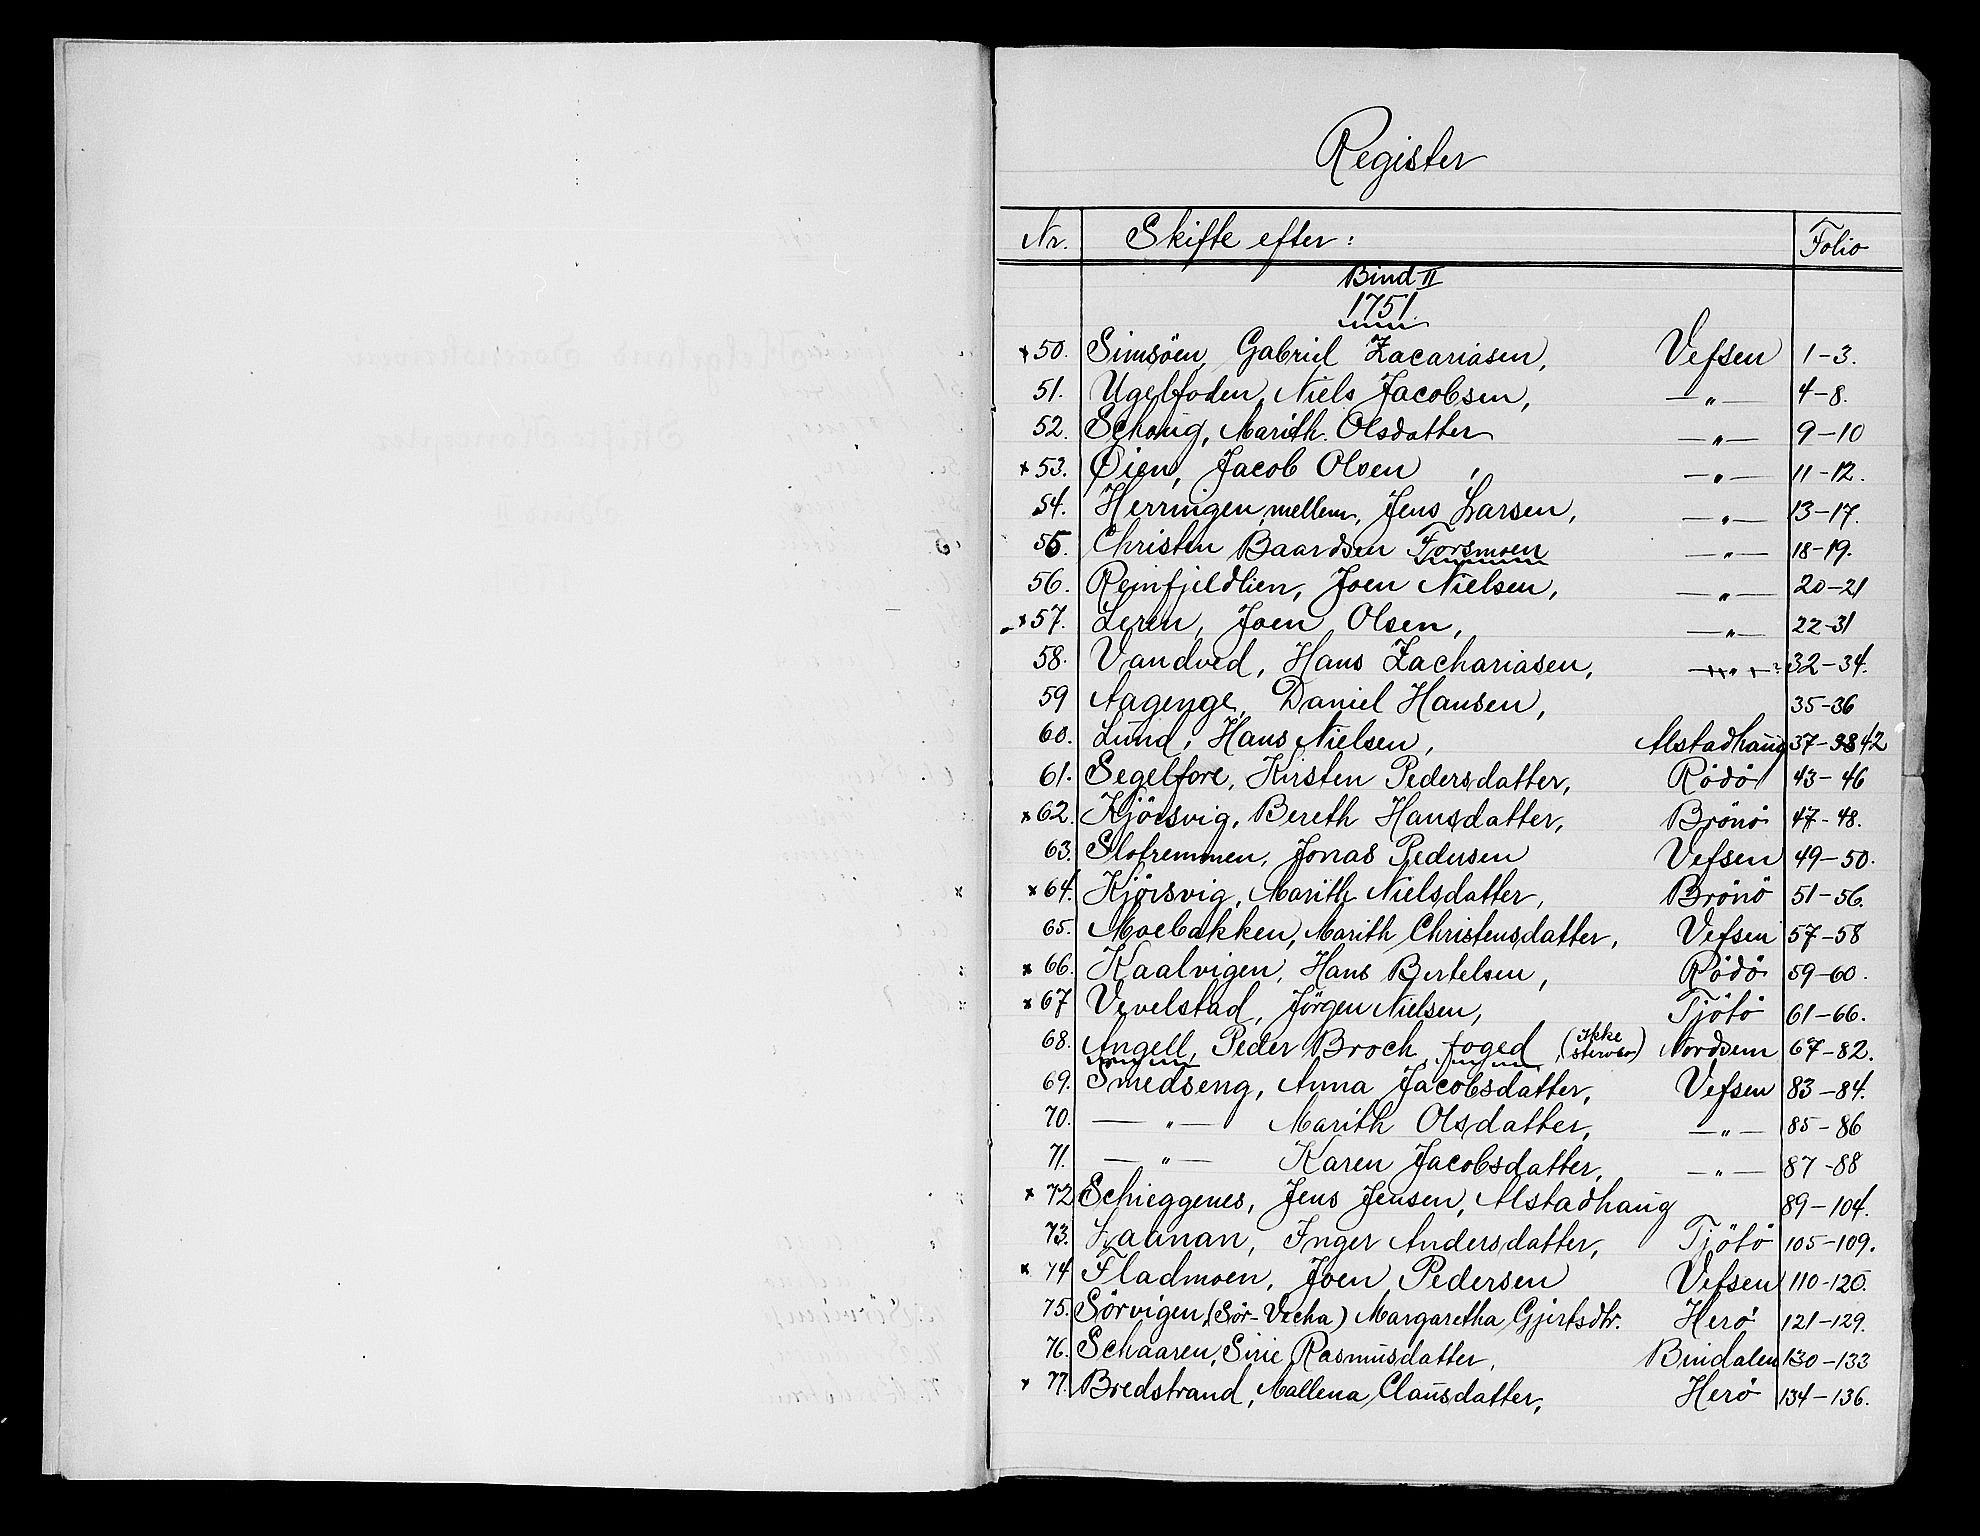 Register
Nr. Skifte efter: Folio
Bind II
1751.
x 50. Simsöen, Gabriel Zacariasen, Vefsen 1-3.
51. Ugelfoden, Niels Jacobsen, —„— 4-8.
52. Schoug, Marith Olsdatter —„— 9-10
x 53. Øien, Jacob Olsen, —„— 11-12.
54. Herringen, mellem, Jens Larsen, —„— 13-17.
55. Christen Baardsen Forsmoen —„— 18-19.
56. Reinfjeldlien, Joen Nielsen, —„— 20-21
x 57. Leren, Joen Olsen, —„— 22-31
58. Vandved, Hans Zachariasen, —„— 32-34.
59 Aagenge, Daniel Hansen, 35-36
60. Lund, Hans Nielsen, Alstadhaug 37-38 42
61. Segelfore, Kirsten Pedersdatter, Rödö 43-46
x 62. Kjörsvig, Bereth Hansdatter, Brönö 47-48.
63. Slotremmen, Jonas Pedersen Vefsen 49-50.
x 64. Kjörsvig, Marith Nielsdatter, Brönö 51-56.
65. Moebakken, Marith Christensdatter, Vefsen 57-58
x 66. Kaalvigen, Hans Bertelsen, Rödö 59-60.
x 67 Vevelstad, Jörgen Nielsen, Tjötö 61-66.
68. Angell, Peder Broch, foged, (ikke stervbo) Nordsem 67-82.
69. Smedseng, Anna Jacobsdatter, Vefsen 83-84.
70. —„— Marith Olsdatter, —„— 85-86
71. —„— Karen Jacobsdatter, —„— 87-88
x 72 Schieggenes, Jens Jensen, Alstadhaug 89-104.
73. Laanan, Inger Andersdatter, Tjötö 105-109.
x 74 Fladmoen, Joen Pedersen Vefsen 110-120.
75. Sörvigen, (Sör-Vecha) Margaretha Gjertsdtr. Herö 121-129.
76. Schaaren, Sirie Rasmusdatter, Bindalen 130-133
x 77. Bredstrand, Mallena Clausdatter, Herö 134-136.